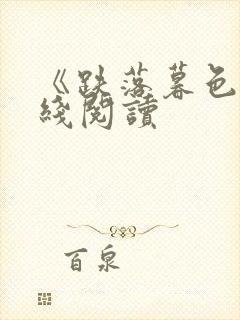 《跌落暮色
綫閱讀
百泉